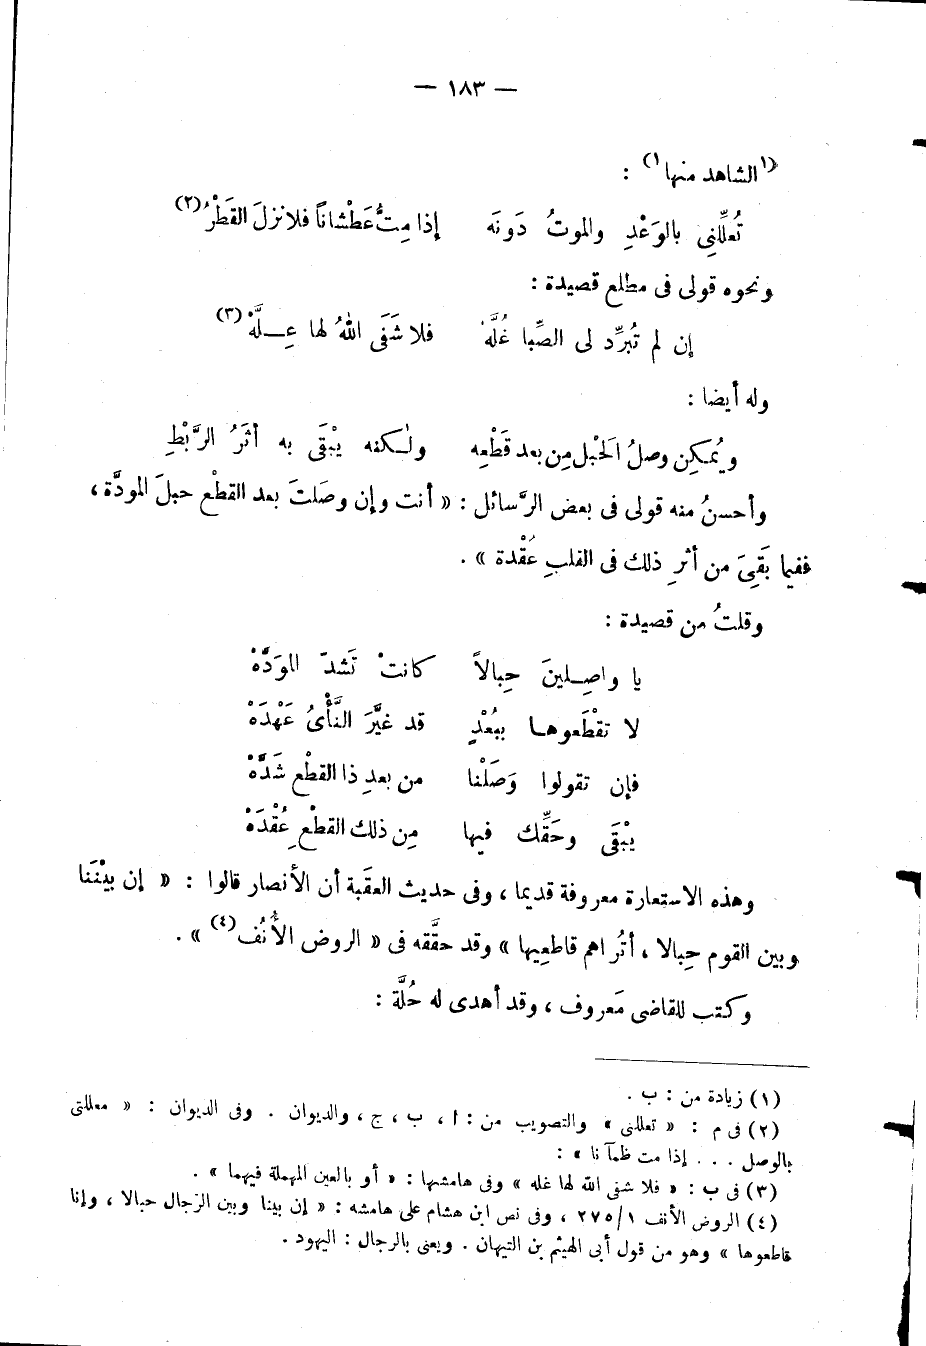 — ١٨٣ —
(١الشاهد منها١) :
تُعلِّنِى بالوَعْدِ والموتُ دَونَه إذا مِتُّ عَطْشاناً فلا نزلَ القَطْرُ(٢)
ونحوه قولى فى مطلع قصيدة :
إن لم تُبرِّد لى الصِّبا غُلَّهْ فلا شَفَى اللهُ لها عِــلَّهْ(٣)
وله أيضا :
ويُمكِن وصلُ الَحْبل مِن بعد قَطْعِه ولٰـكنه يبْقَى به أثَرُ الرَّبْطِ
وأحسنُ منه قولى فى بعض الرَّسائل : « أنت وإن وصَلتَ بعد القطْع حبلَ المودَّة ،
ففيما بَقِىَ من أثرِ ذلك فى القلبِ عُقْدة » .
وقلتُ من قصيدة :
يا واصِـلينَ حِبالاً كانتْ تَشدّ الموَدَّهْ
لا تقْطَعوهـا ببُعْدٍ قد غيَّرَ النَّأْىُ عَهْدَهْ
فإن تقولوا وَصَلْنا من بعدِ ذا القطْع شَدَّهْ
يبْقَى وحَقِّك فيها مِن ذلك القطْعِ عُقْدَهْ
وهذه الاستعارة معروفة قديما ، وفى حديث العقَبة أن الأنصار قالوا : « إن بيْنَنا
وبين القوم حِبالا ، أتُراهم قاطعِيها » وقد حقَّقه فى « الروض الأُنُف(٤) » .
وكتب للقاضى مَعروف ، وقد أهدى له حُلَّة :
(١) زيادة من : ب .
(٢) فى م : « تعللنى » والتصويب من : ا ، ب ، ج ، والديوان . وفى الديوان : « معللتى
بالوصل . . . إذا مت ظمآنا » :
(٣) فى ب : « فلا شفى الله لها غله » وفى هامشها : « أو بالعين المهملة فيهما » .
(٤) الروض الأنف ٢٧٥/١ ، وفى نص ابن هشام على هامشه : « إن بيننا وبين الرجال حبالا ، وإنا
قاطعوها » وهو من قول أبى الهيثم بن التيهان . ويعنى بالرجال : اليهود .